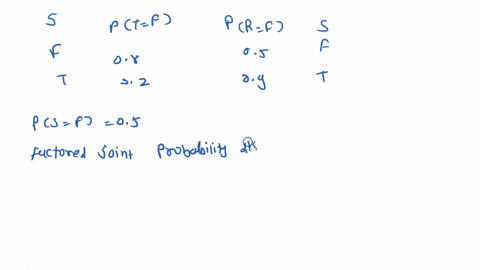 S P(T=F) P(R=F) S
F 0.8 0.5 F
T 0.2 0.9 T
P(S=F) = 0.5
Factored Joint Probability